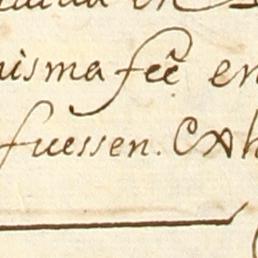 en
misma feê en
fuessen. Exh